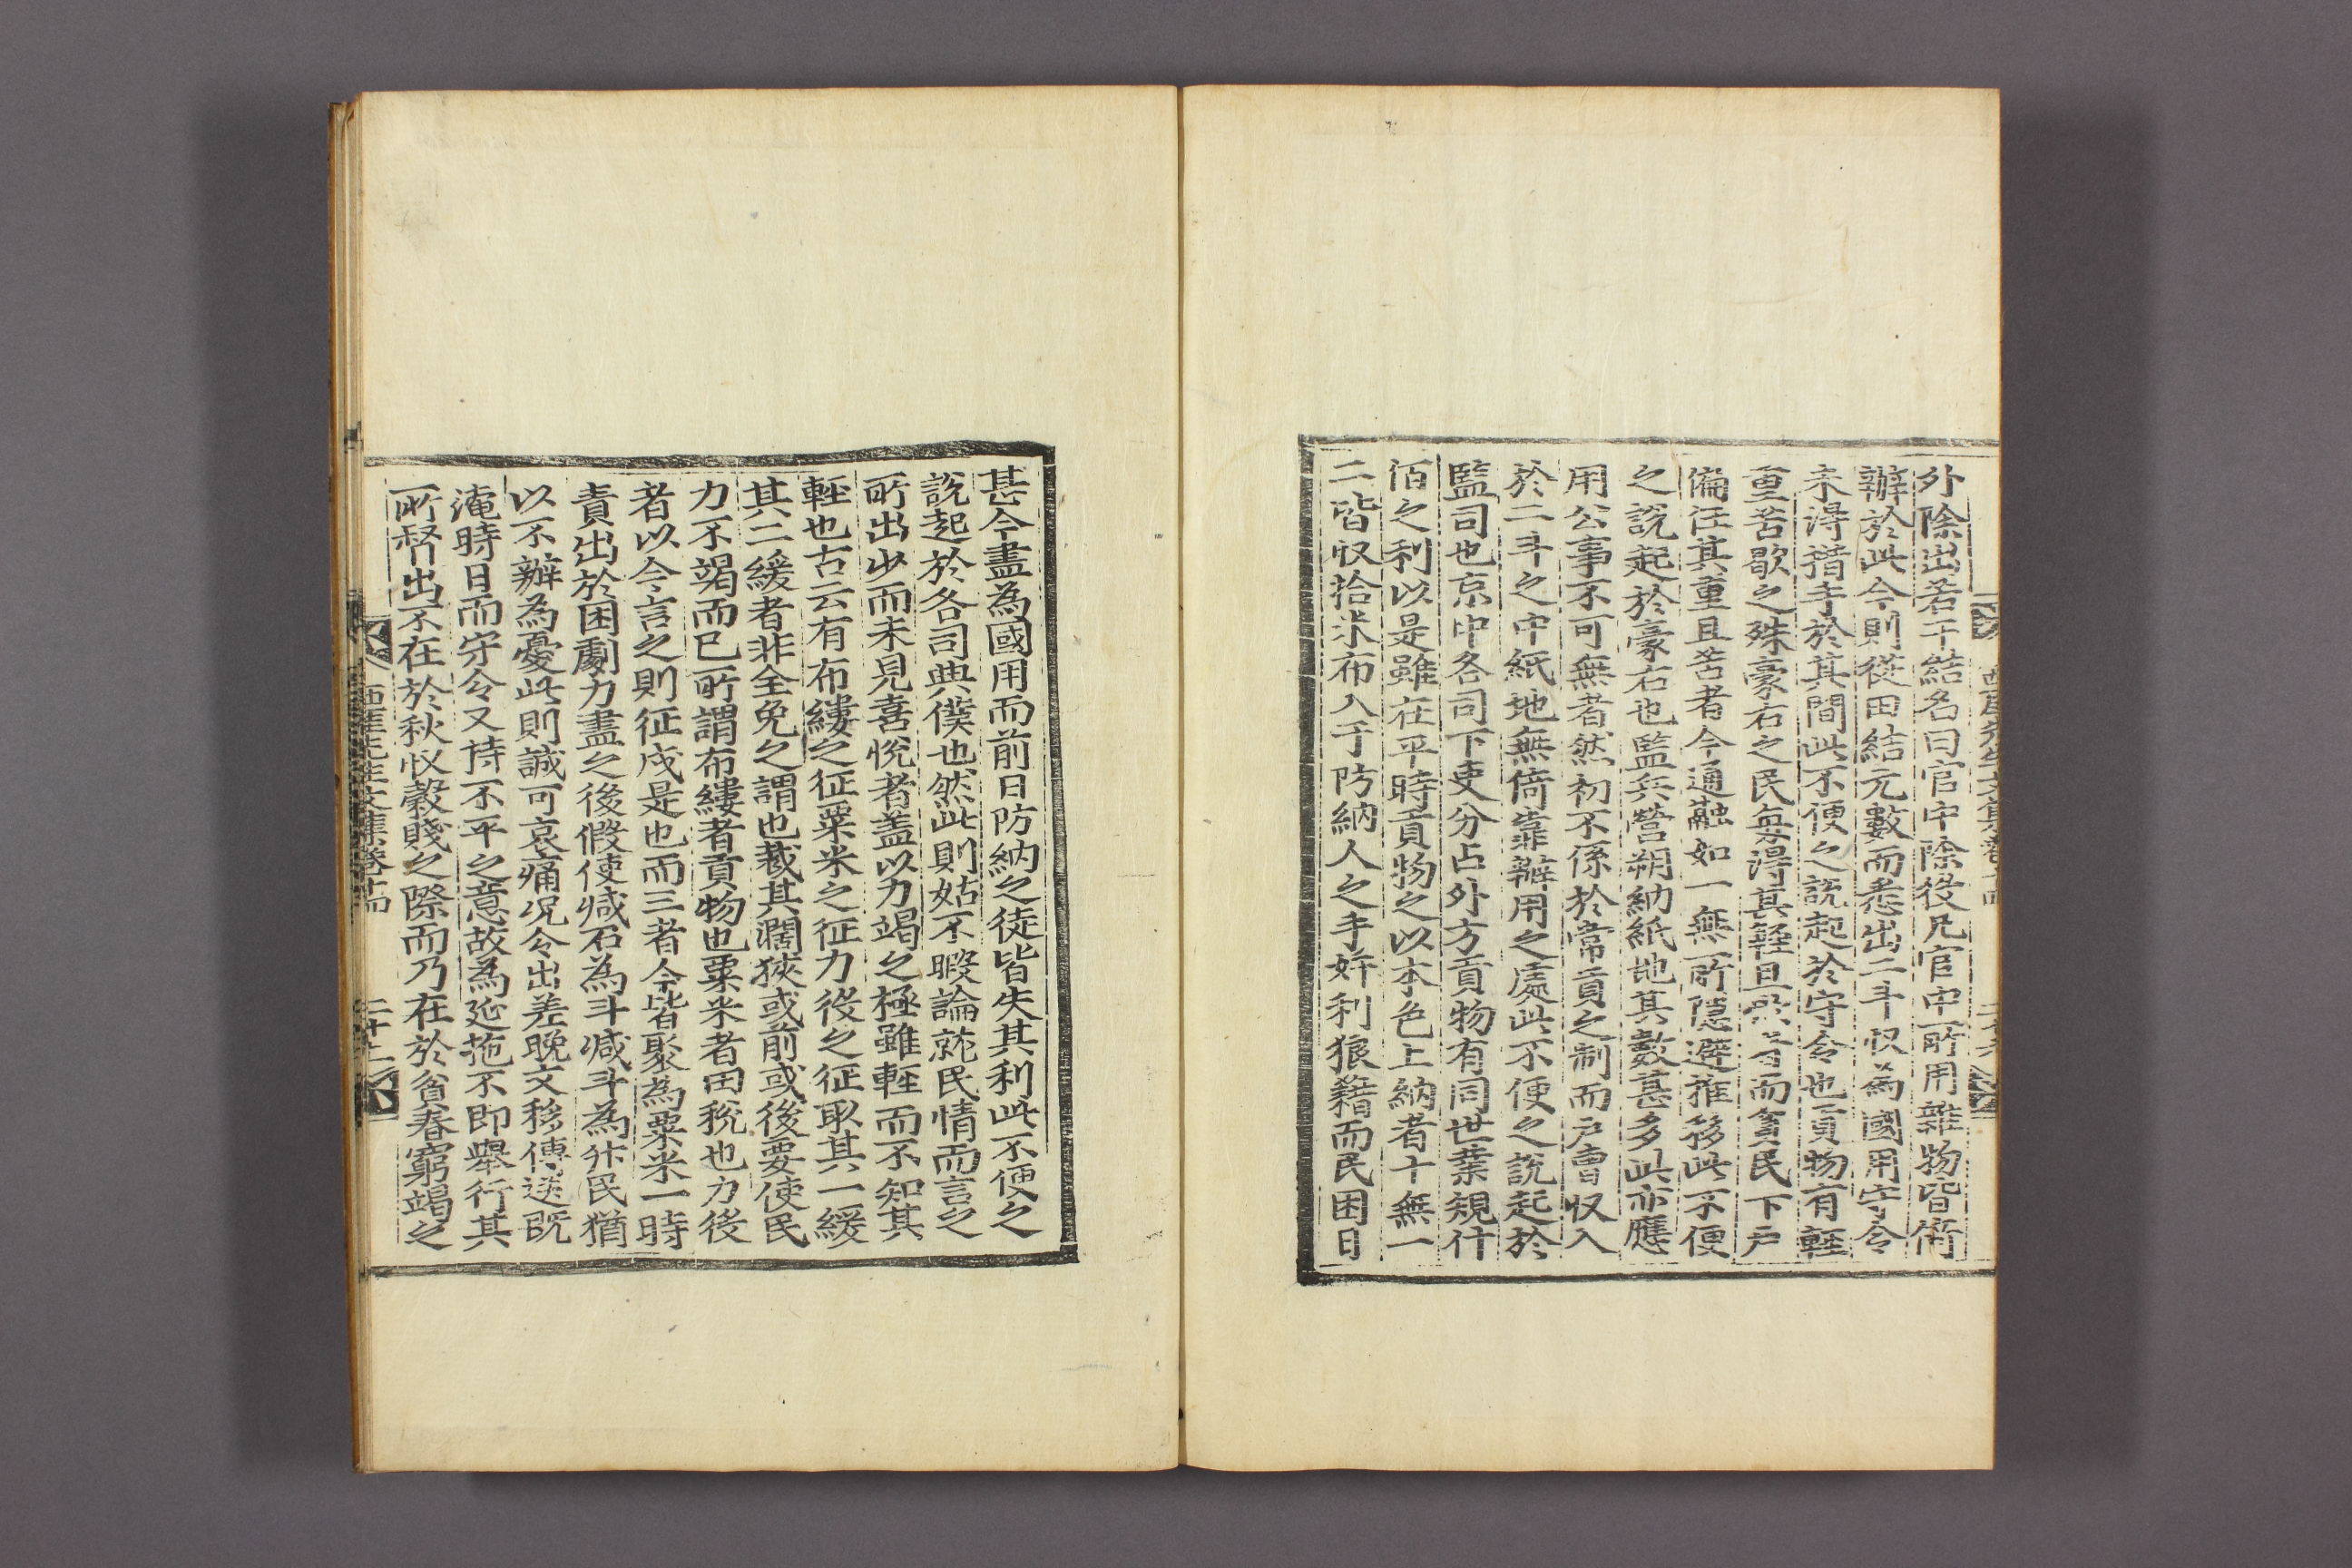 外除出若干結名曰官中除役凡官中所用雜物皆備
辦於此今則從田結元數而悉出二斗収為國用守令
未得措手於其間此不便之說起於守令也貢物有輕
重苦歇之殊豪右之民每得其輕且歇者而貧民下戶
偏任其重且苦者今通融如一無所隱避推移此不便
之說起於豪右也監兵營朔納紙地其數甚多此亦應
用公事不可無者然初不係於常貢之制而戶曹収入
於二斗之中紙地無倚靠辦用之處此不便之說起於
監司也京中各司下吏分占外方貢物有同世業規什
佰之利以是雖在平時貢物之以本色上納者十無一
二皆収拾米布入于防納人之手奸利狼藉而民困日
甚今盡為國用而前日防納之徒皆失其利此不便之
說起於各司典僕也然此則姑不暇論就民情而言之
所出少而未見喜悅者盖以力竭之極雖輕而不知其
輕也古云有布縷之征粟米之征力役之征取其一緩
其二緩者非全免之謂也裁其濶狹或前或後要使民
力不竭而已所謂布縷者貢物也粟米者田稅也力役
者以今言之則征戍是也而三者今皆聚為粟米一時
責出於困劇力盡之後假使减石為斗减斗為升民猶
以不辦為憂此則誠可哀痛况令出差晚文移傳送既
淹時日而守令又持不平之意故為延拖不即舉行其
所督出不在於秋収穀賤之際而乃在於貧春窮竭之
西厓先生文集卷十四 二十二